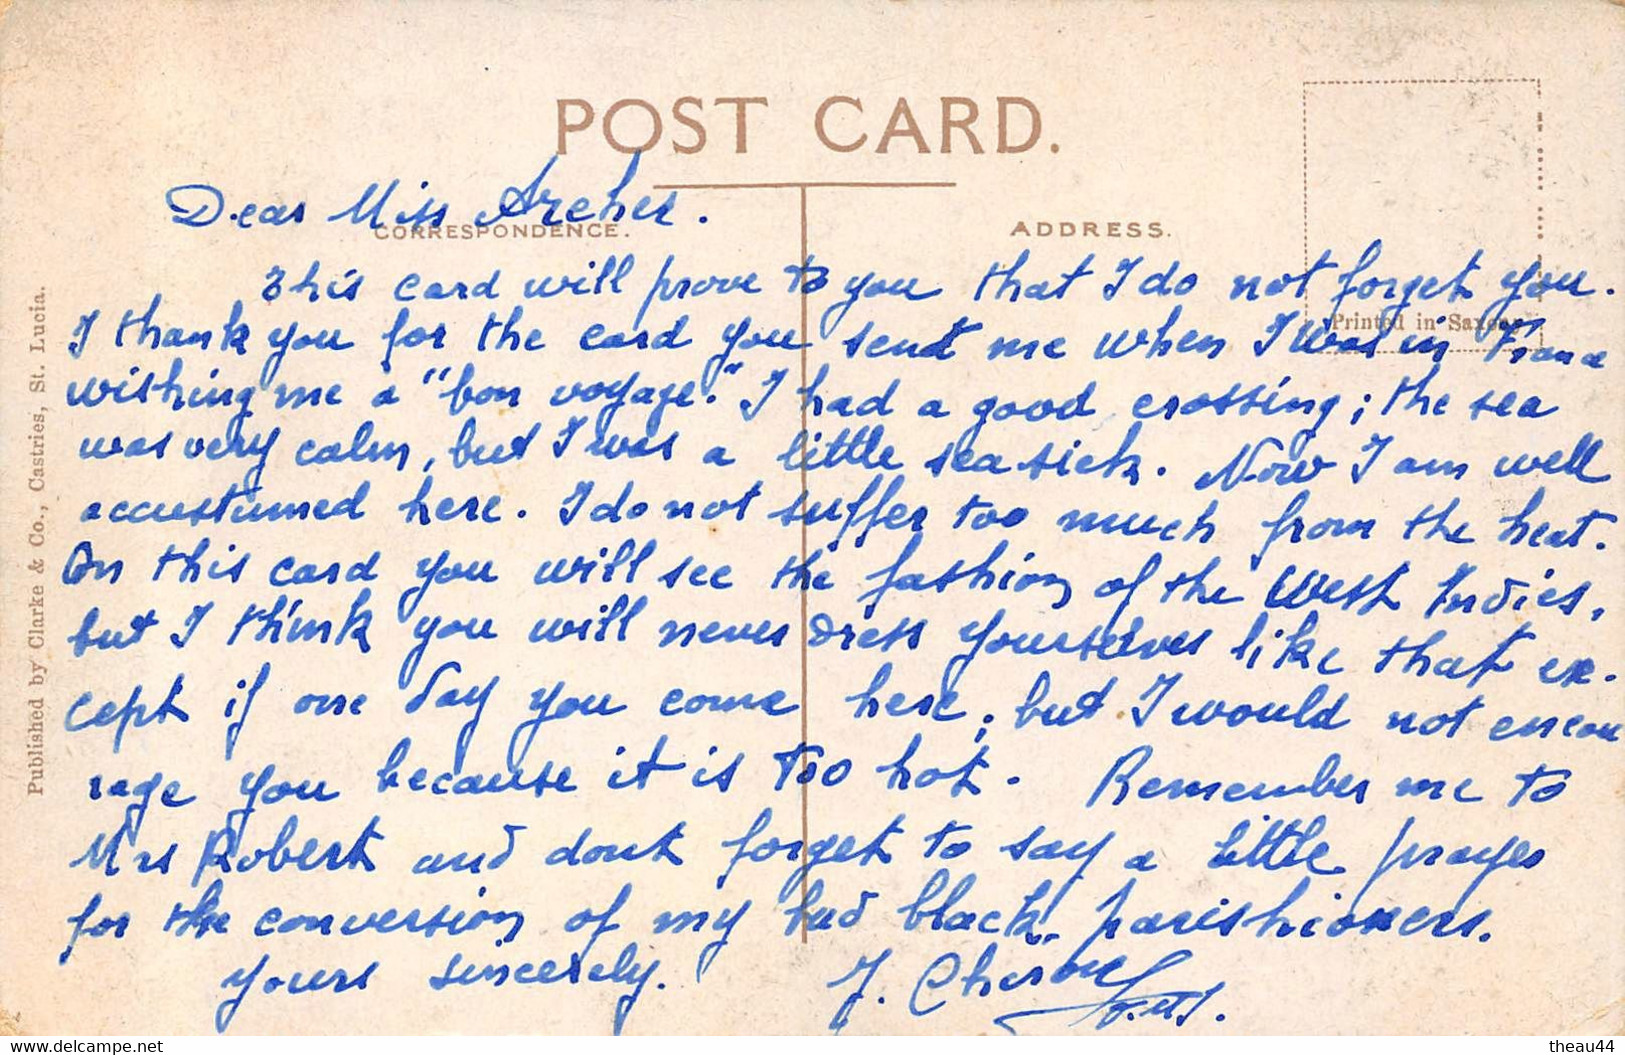 POST CARD.
CORRESPONDENCE.
ADDRESS.
Printed in Saxony
Published by Clarke & Co., Castries, St. Lucia.
Dear Miss Archer.
This card will prove to you that I do not forget you.
I thank you for the card you send me when I was in France
wishing me a "bon voyage." I had a good crossing; the sea
was very calm, but I was a little sea sick. Now I am well
accustumed here. I do not suffer too much from the heat.
On this card you will see the fashion of the West Indies,
but I think you will never dress yourselves like that ex-
cept if one day you come here, but I would not encou
rage you because it is too hot. Remember me to
Mrs Robert and dont forget to say a little prayer
for the conversion of my bad black parishioners.
Yours sincerely. J. Cheron
www.delcampe.net
theau44